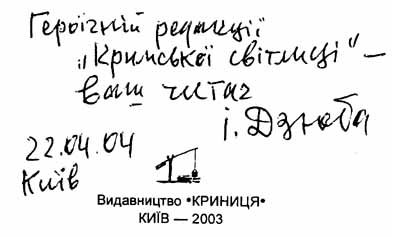 Героїчній редакції
"Кримської світлиці" –
ваш читач
і. Дзюба
22.04.04
Київ
Видавництво •КРИНИЦЯ•
КИЇВ — 2003